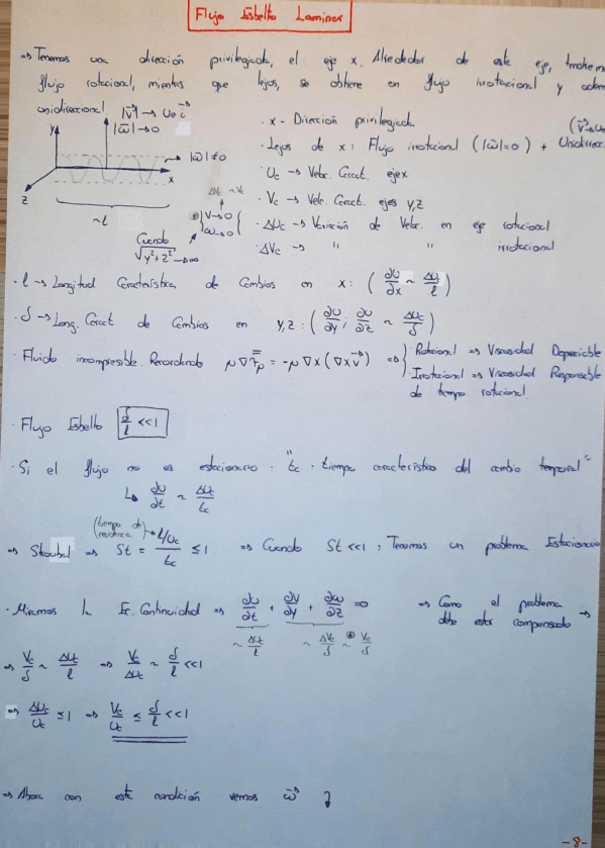 Flujo Esbelto Laminar
⇒ Tenemos una dirección privilegiada, el eje x. Alrededor de este eje,
flujo rotacional, mientras que lejos, se obtiene un flujo irrotacional y
unidireccional
|v⃗| → Uc i⃗
|ω⃗| → 0
y
x
z
|ω⃗| ≠ 0
~l
Cuando √(y²+z²) → ∞
V → 0
ω → 0
ΔVc ~ Vc
· x - Dirección privilegiada
· Lejos de x: Flujo irrotacional (|ω⃗|=0) +
· Uc → Veloc. Caract. eje x
· Vc → Veloc. Caract. ejes y,z
· ΔUc → Variación de Veloc. en eje rotacional
· ΔVc → " " irrotacional
· l → Longitud Característica de Cambios en x: (∂U/∂x ~ ΔUc/l)
· δ → Long. Caract de Cambios en y,z: (∂U/∂y, ∂U/∂z ~ ΔUc/δ)
· Fluido incompresible. Recordando
Rotacional ⇒ Viscosidad Depreciable
Irrotacional ⇒ Viscosidad Responsable
de tiempo rotacional
· Flujo Esbelto δ/l <<1
· Si el flujo no es estacionario: "tc: tiempo característico del cambio temporal"
↳ ∂U/∂t ~ ΔUc/tc
(tiempo de residencia)
⇒ Strouhal ⇒ St = (l/Uc)/tc ≤ 1 ⇒ Cuando St <<1: Tenemos un problema Estacionario
· Miramos la Ec. Continuidad ⇒ ∂U/∂t + ∂V/∂y + ∂ω/∂z = 0 ⇒ Como el problema debe estar compensado ⇒
~ ΔUc/l ~ ΔVc/δ ~ Vc/δ
⇒ Vc/δ ~ ΔUc/l ⇒ Vc/ΔUc ~ δ/l <<1
⇒ ΔUc/Uc ≤ 1 ⇒ Vc/Uc ≤ δ/l <<1
⇒ Ahora con esta condición vemos ω⃗